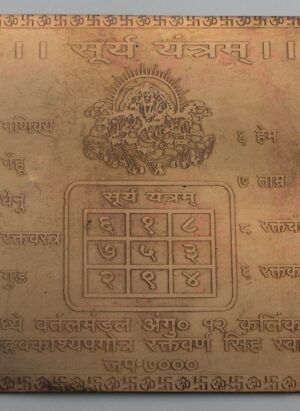 ।। सूर्य यंत्रम् ।।
६ हेम
७ ताम्र
धेनु
८ रक्तचं
रक्तवस्त्र
रक्तक
गुड
सूर्य यंत्रम्
६ १ ८
७ ५ ३
२ ९ ४
ध्ये वर्तुलमंडल अंगु० १२ कलिंक
द्भवकाश्यपगोत्र रक्तवर्ण सिंह स्वा
जप-७०००